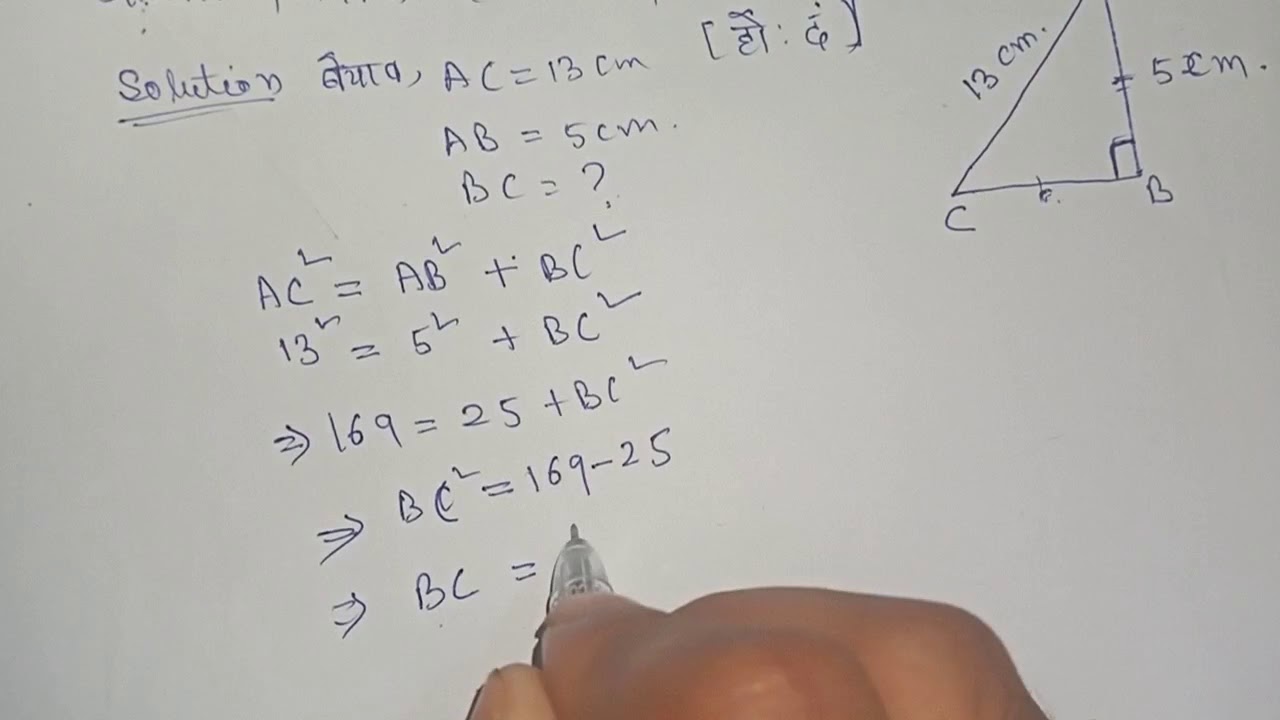 Solution AC = 13 cm
[हौ: दं]
AB = 5 cm.
BC = ?
AC² = AB² + BC²
13² = 5² + BC²
⇒ 169 = 25 + BC²
⇒ BC² = 169 - 25
⇒ BC =
13 cm.
5 cm.
C
B